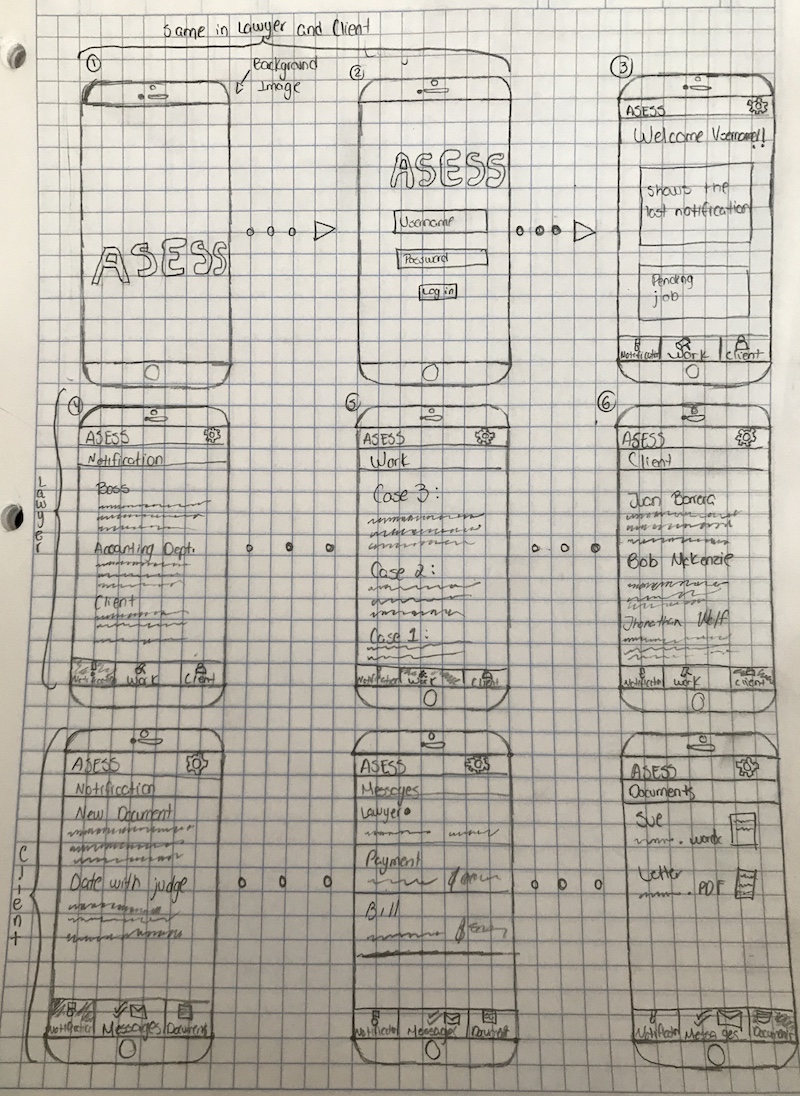 Same in Lawyer and Client
1
Background
Image
ASESS
2
ASESS
Username
Password
Log in
3
ASESS
Welcome Username!!
Shows the
last notification
Pending
job
Work
Client
Lawyer
4
ASESS
Notification
Boss
Accounting Dept.
Client
Work
Client
5
ASESS
Work
Case 3:
Case 2:
Case 1:
Work
Client
6
ASESS
Client
Juan Barrera
Bob McKenzie
Jhonathan Wolf
Work
Client
Client
ASESS
Notification
New Document
Date with judge
Messages
ASESS
Messages
Lawyer
Payment
$
Bill
$
Messages
ASESS
Documents
Sue
.wordx
Letter
.PDF
Messages
Documents